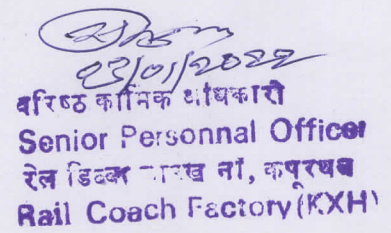 23/01/2022
वरिष्ठ कार्मिक अधिकारी
Senior Personnal Officer
रेल डिब्बा
Rail Coach Factory (KXH)